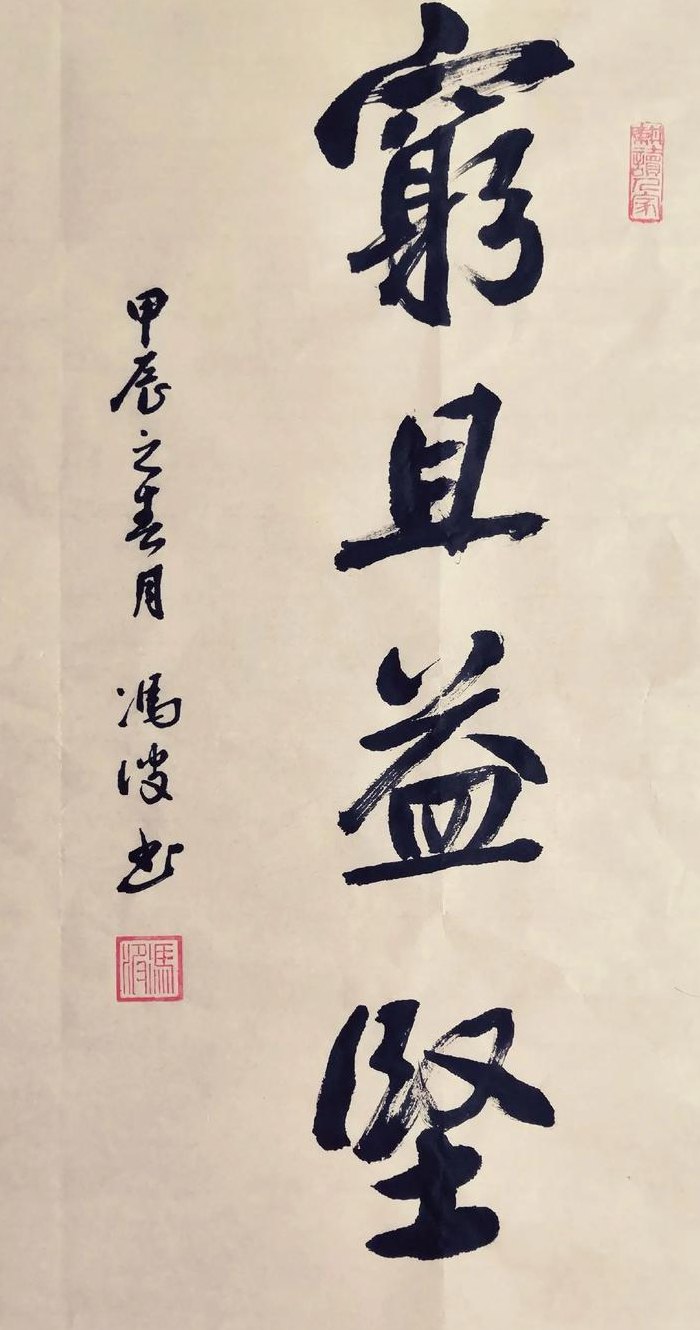 窮且益堅
甲辰之春月
馮
書